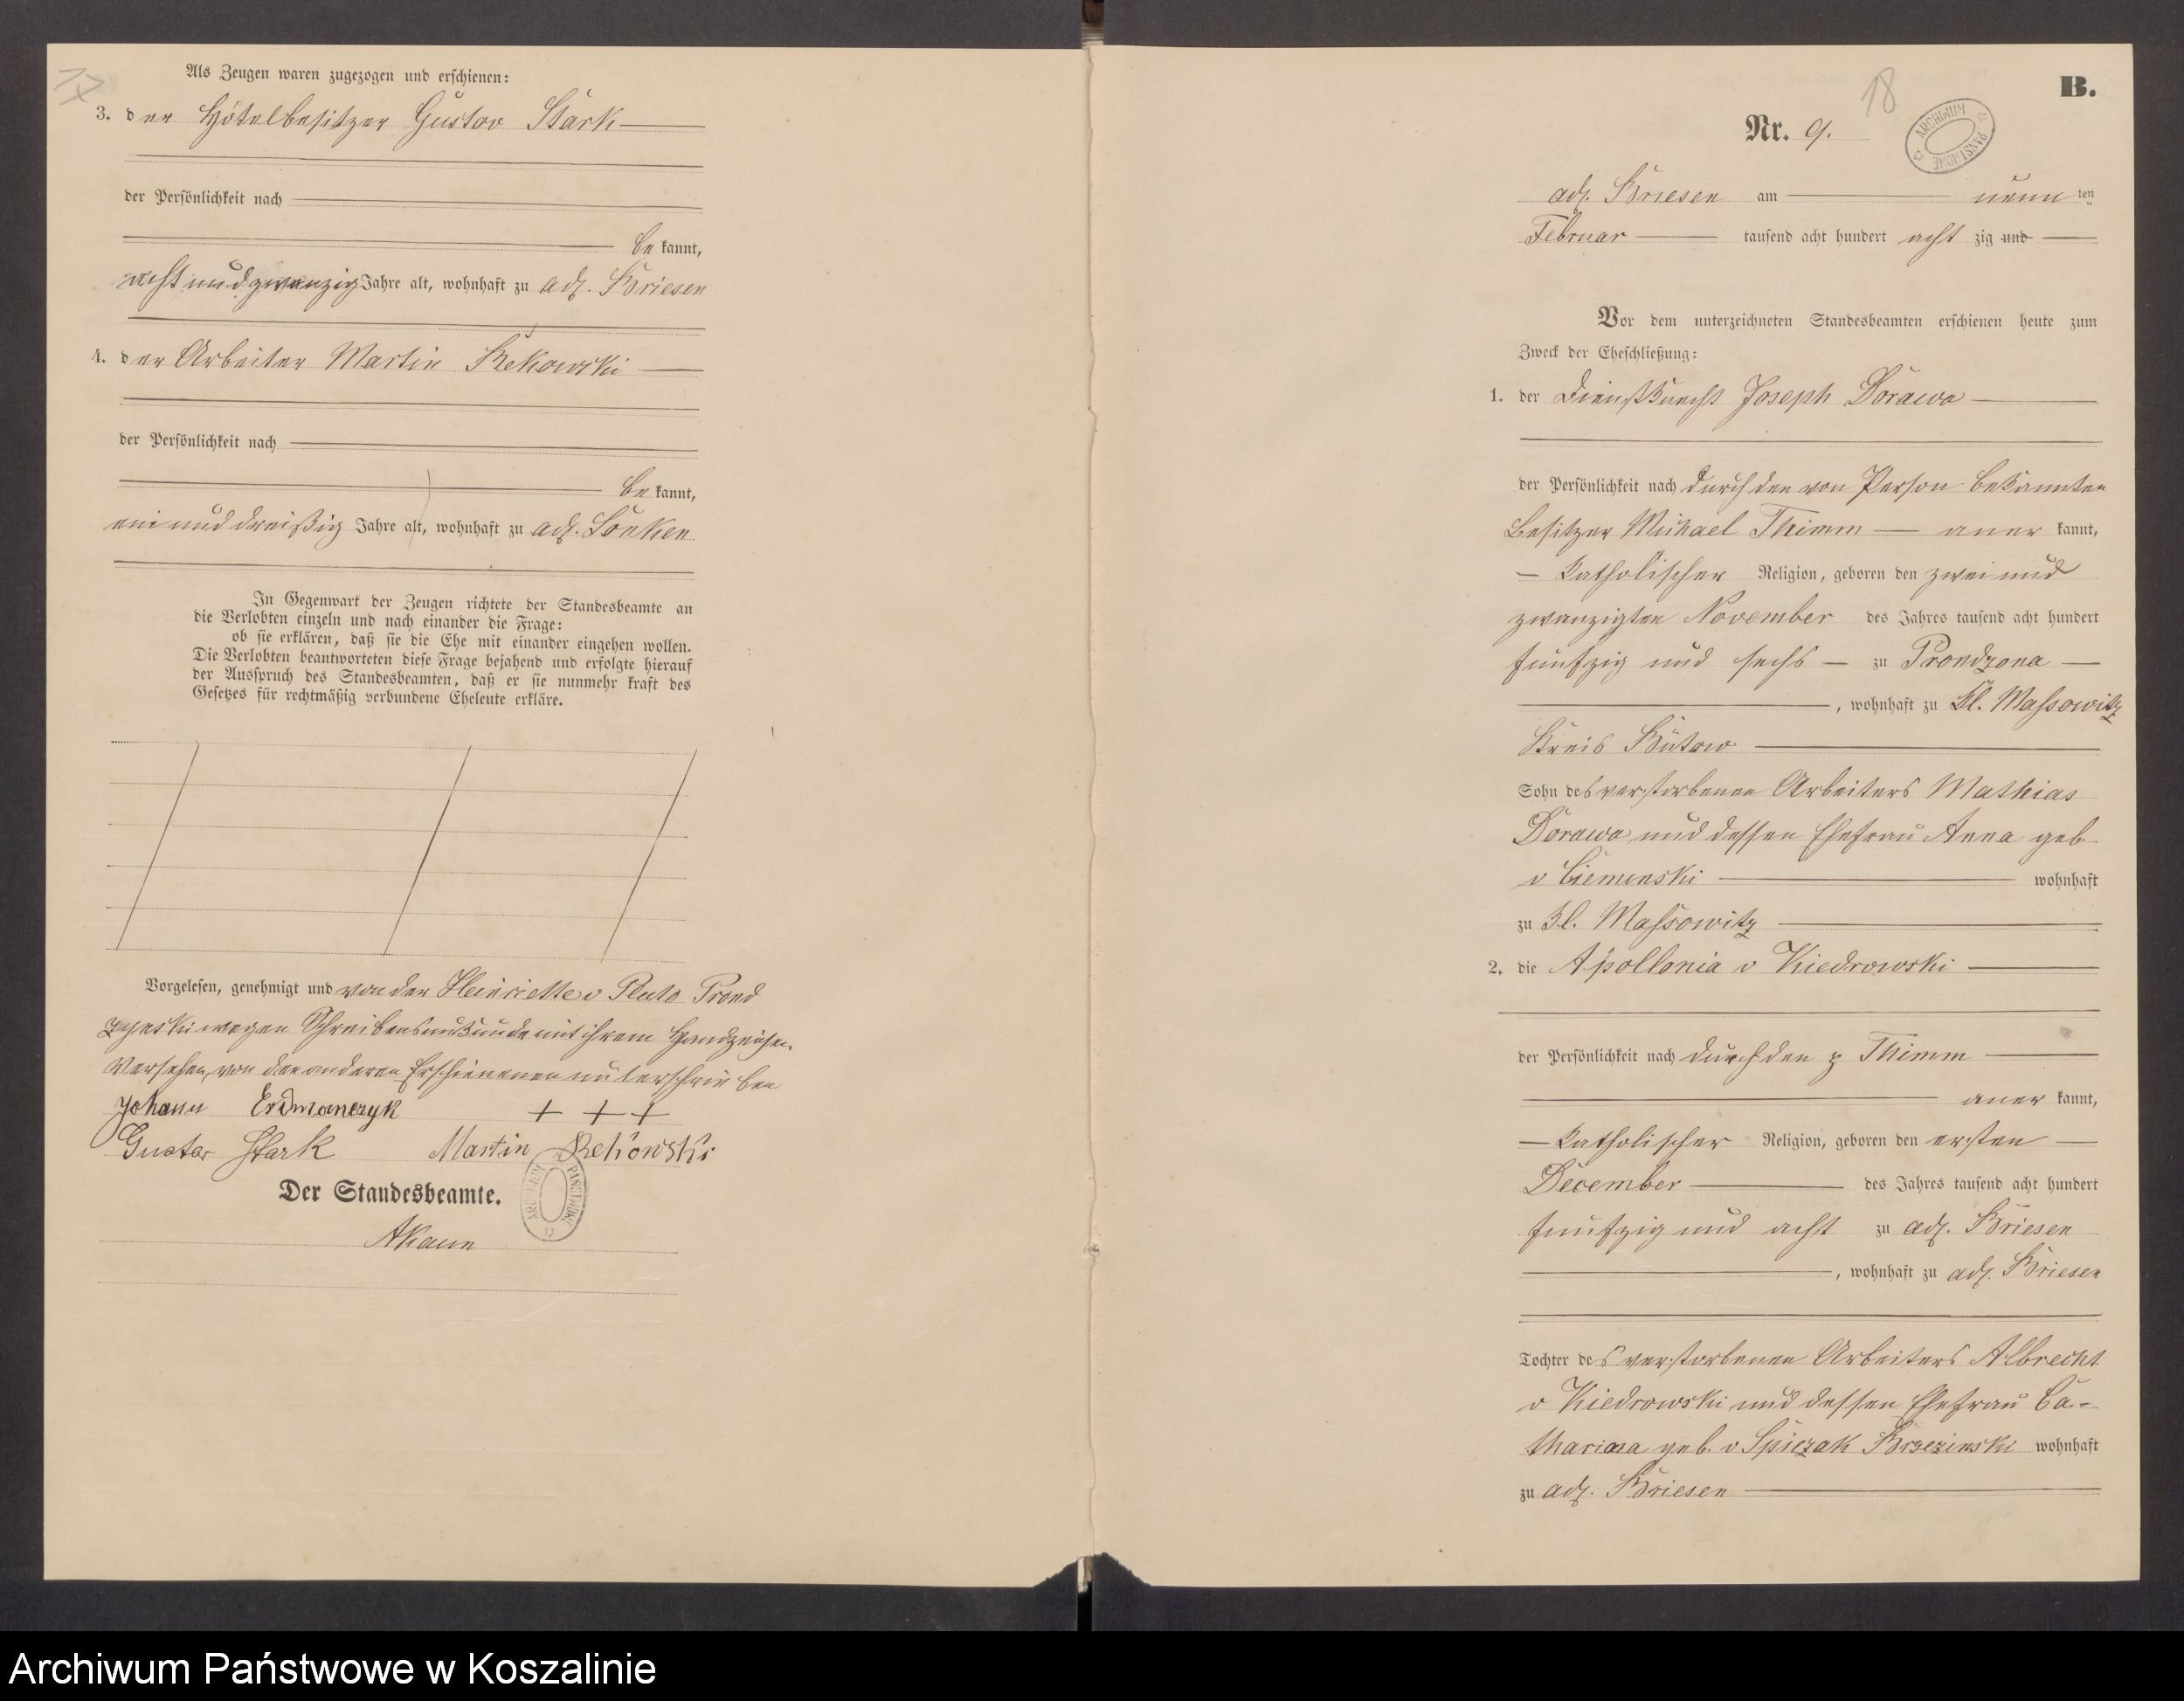 Als Zeugen waren zugezogen und erschienen:
3. der Hôtelbesitzer Gustav Stark
der Persönlichkeit nach
be kannt,
achtundzwanzig Jahre alt, wohnhaft zu adl. Briesen
4. der Arbeiter Martin Rekowski
der Persönlichkeit nach
be kannt,
einunddreißig Jahre alt, wohnhaft zu adl. Lonken
In Gegenwart der Zeugen richtete der Standesbeamte an
die Verlobten einzeln und nach einander die Frage:
ob sie erklären, daß sie die Ehe mit einander eingehen wollen.
Die Verlobten beantworteten diese Frage bejahend und erfolgte hierauf
der Ausspruch des Standesbeamten, daß er sie nunmehr kraft des
Gesetzes für rechtmäßig verbundene Eheleute erkläre.
Vorgelesen, genehmigt und von der Henriette v Pluto Prond
zynski wegen Schreibensunkunde mit ihrem Handzeichen
versehen, von den anderen Erschienenen unterschrieben
Johann Erdmanczyk + + +
Gustav Stark Martin Rekowski
ARCHIWUM PAŃSTWOWE
Der Standesbeamte.
18
B.
Nr. 9.
ARCHIWUM PAŃSTWOWE
adl. Briesen am neun ten
Februar tausend acht hundert acht zig und
Vor dem unterzeichneten Standesbeamten erschienen heute zum
Zweck der Eheschließung:
1. der Dienstknecht Joseph Dorawa
der Persönlichkeit nach durch den von Person bekannten
Besitzer Michael Thimm aner kannt,
katholischer Religion, geboren den zweiund
zwanzigten November des Jahres tausend acht hundert
fünfzig und sechs zu Prondzona
, wohnhaft zu Kl. Massowitz
Kreis Bütow
Sohn des verstorbenen Arbeiters Mathias
Dorawa und dessen Ehefrau Anna geb.
v Ciemenski wohnhaft
zu Kl. Massowitz
2. die Apollonia v Kiedrowski
der Persönlichkeit nach durch den p Thimm
aner kannt,
katholischer Religion, geboren den ersten
December des Jahres tausend acht hundert
fünfzig und acht zu adl. Briesen
, wohnhaft zu adl. Briesen
Tochter des verstorbenen Arbeiters Albrecht
v Kiedrowski und dessen Ehefrau Ca-
tharina geb. v Spiczak Brzezinski wohnhaft
zu adl. Briesen
Archiwum Państwowe w Koszalinie